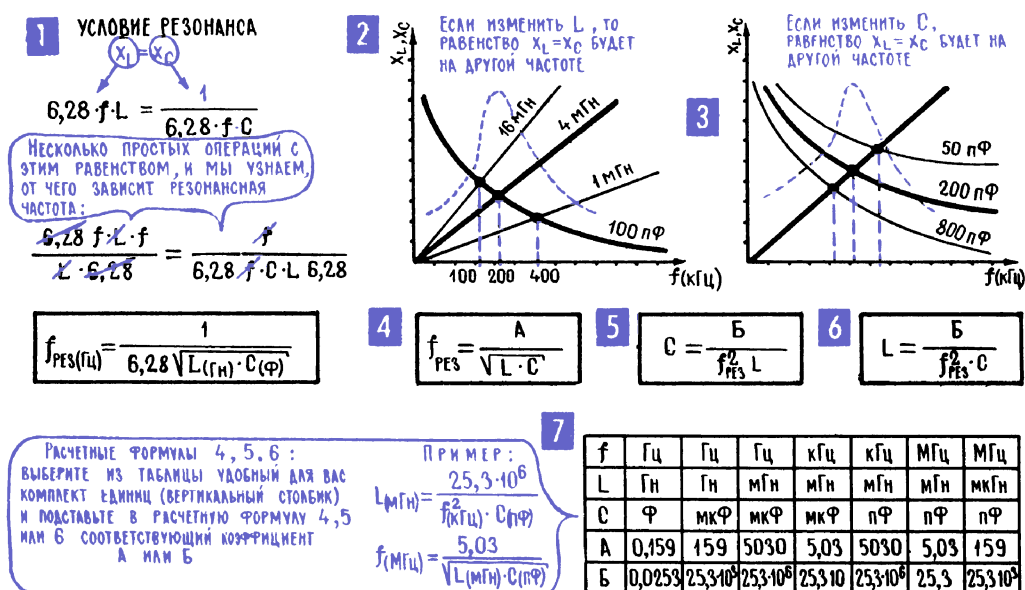 1
УСЛОВИЕ РЕЗОНАНСА
X_L = X_C
6,28·f·L = 1 / 6,28·f·C
НЕСКОЛЬКО ПРОСТЫХ ОПЕРАЦИЙ С
ЭТИМ РАВЕНСТВОМ, И МЫ УЗНАЕМ,
ОТ ЧЕГО ЗАВИСИТ РЕЗОНАНСНАЯ
ЧАСТОТА:
6,28 f·L·f / L·6,28 = f / 6,28 f·C·L 6,28
f РЕЗ(Гц) = 1 / 6,28 √L(Гн)·C(Ф)
2
ЕСЛИ ИЗМЕНИТЬ L, ТО
РАВЕНСТВО X_L=X_C БУДЕТ
НА ДРУГОЙ ЧАСТОТЕ
X_L, X_C
16 МГН
4 МГН
1 МГН
100 ПФ
100 200 400
f(КГЦ)
3
ЕСЛИ ИЗМЕНИТЬ C,
РАВЕНСТВО X_L = X_C БУДЕТ НА
ДРУГОЙ ЧАСТОТЕ
X_L, X_C
50 ПФ
200 ПФ
800 ПФ
f(КГЦ)
4
f РЕЗ = А / √L·C
5
C = Б / f²РЕЗ L
6
L = Б / f²РЕЗ·C
РАСЧЕТНЫЕ ФОРМУЛЫ 4,5.6:
ВЫБЕРИТЕ ИЗ ТАБЛИЦЫ УДОБНЫЙ ДЛЯ ВАС
КОМПЛЕКТ ЕДИНИЦ (ВЕРТИКАЛЬНЫЙ СТОЛБИК)
И ПОДСТАВЬТЕ В РАСЧЕТНУЮ ФОРМУЛУ 4,5
ИЛИ 6 СООТВЕТСТВУЮЩИЙ КОЭФФИЦИЕНТ
А ИЛИ Б
ПРИМЕР:
L(МГН) = 25,3·10⁶ / f²(КГЦ)·C(ПФ)
f(МГЦ) = 5,03 / √L(МГН)·C(ПФ)
7
f Гц Гц Гц кГц кГц МГц МГц
L Гн Гн мГн мГн мГн мГн мкГн
C Ф мкФ мкФ мкФ пФ пФ пФ
А 0,159 159 5030 5,03 5030 5,03 159
Б 0,0253 25,3·10³ 25,3·10⁶ 25,3 10 25,3·10⁶ 25,3 25,3 10³